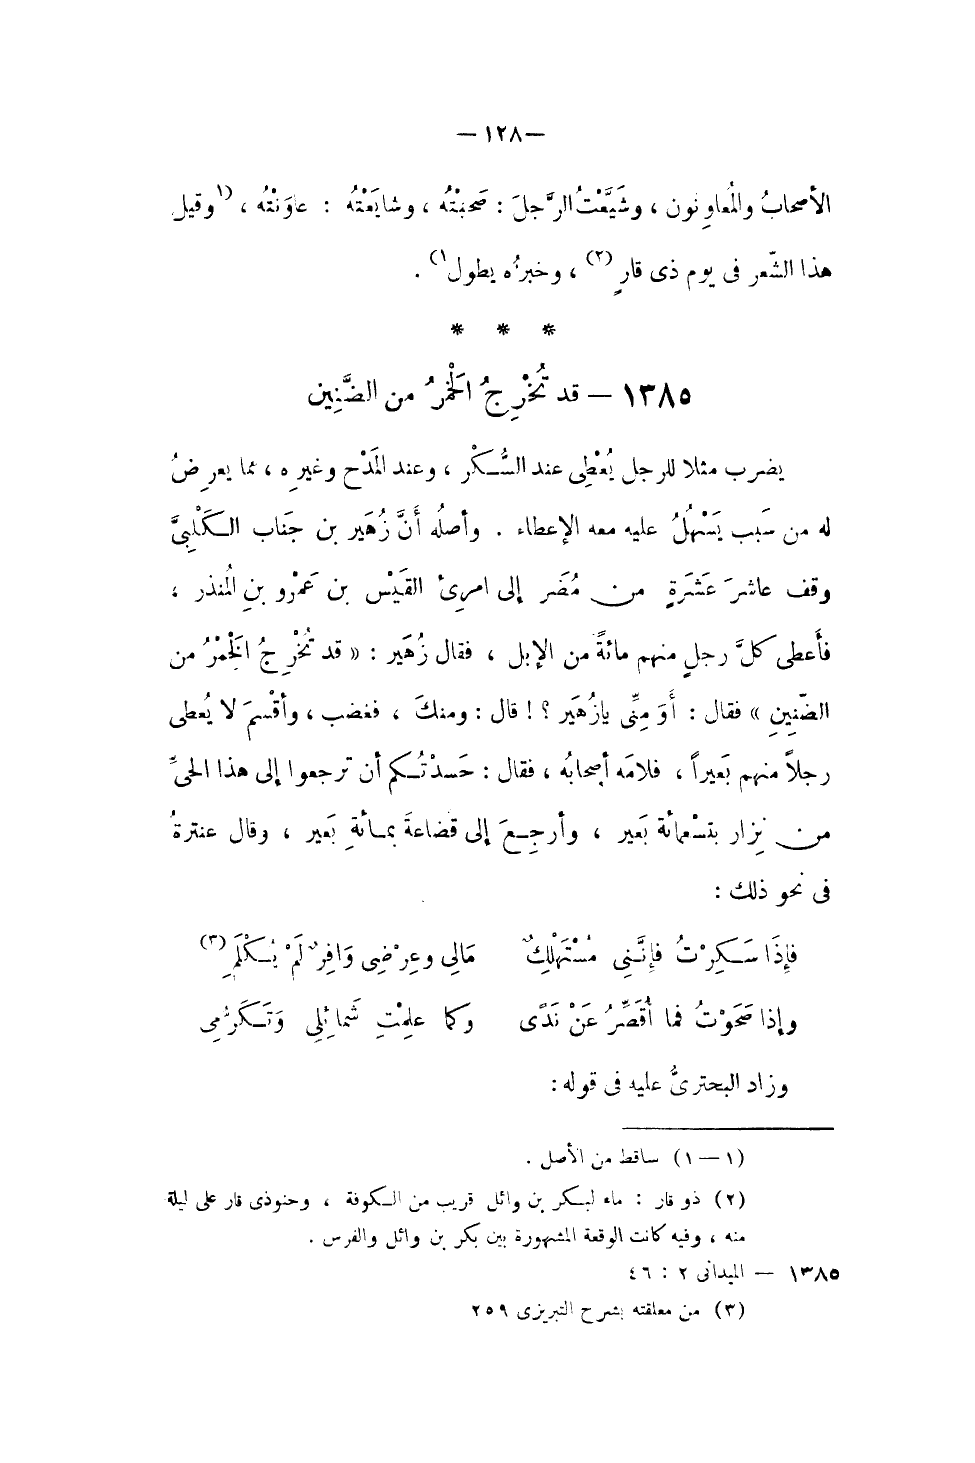 — ١٢٨ —
الأصحابُ والمُعاوِنون ، وشَيَّعْتُ الرَّجلَ : صَحِبْتُه ، وشايَعْتُه : عاوَنْتُه ، (١وقيل
هذا الشّعر فى يوم ذى قارٍ (٢) ، وخبرُه يطول١) .
* * *
١٣٨٥ — قد تُخْرِجُ الخَمْرُ من الضَّنِين
يضرب مثلا للرجل يُعْطِى عند السُّكْر ، وعند المَدْح وغيرِه ، مما يعرِضُ
له من سَبب يَسْهُلُ عليه معه الإعطاء . وأصلُه أَنَّ زُهَير بن جَناب الكَلْبِىَّ
وقف عاشرَ عَشَرَةٍ من مُضَر إلى امرِئ القَيْس بن عَمْرو بنِ المُنذر ،
فأَعطى كلَّ رجلٍ منهم مائةً من الإبل ، فقال زُهَير : « قد تُخْرِجُ الخَمْرُ من
الضّنِينِ » فقال : أَوَ مِنِّى يازُهَير ؟ ! قال : ومنكَ ، فغضب ، وأقْسمَ لا يُعطى
رجلاً منهم بَعيراً ، فلامَه أصحابُه ، فقال : حَسدْتُكم أن ترجعوا إلى هذا الحىِّ
من نِزار بتسْعمائة بَعير ، وأرجِعَ إلى قضاعةَ بمائةِ بَعير ، وقال عنترةُ
فى نحو ذلك :
فإِذَا سَكِرْتُ فإِنَّنِى مُسْتَهْلِكٌ مَالِى وعِرْضِى وَافِرٌ لَمْ يُكْلَمِ (٣)
وإِذا صَحَوْتُ فما أُقَصِّرُ عَنْ نَدًى وكما علِمْتِ شَمائِلِى وَتَكَرُّمِى
وزاد البحترىُّ عليه فى قوله :
(١ — ١) ساقط من الأصل .
(٢) ذو قار : ماء لبكر بن وائل قريب من الكوفة ، وحنوذى قار على ليلة
منه ، وفيه كانت الوقعة المشهورة بين بكر بن وائل والفرس .
١٣٨٥ — الميدانى ٢ : ٤٦
(٣) من معلقته بشرح التبريزى ٢٥٩